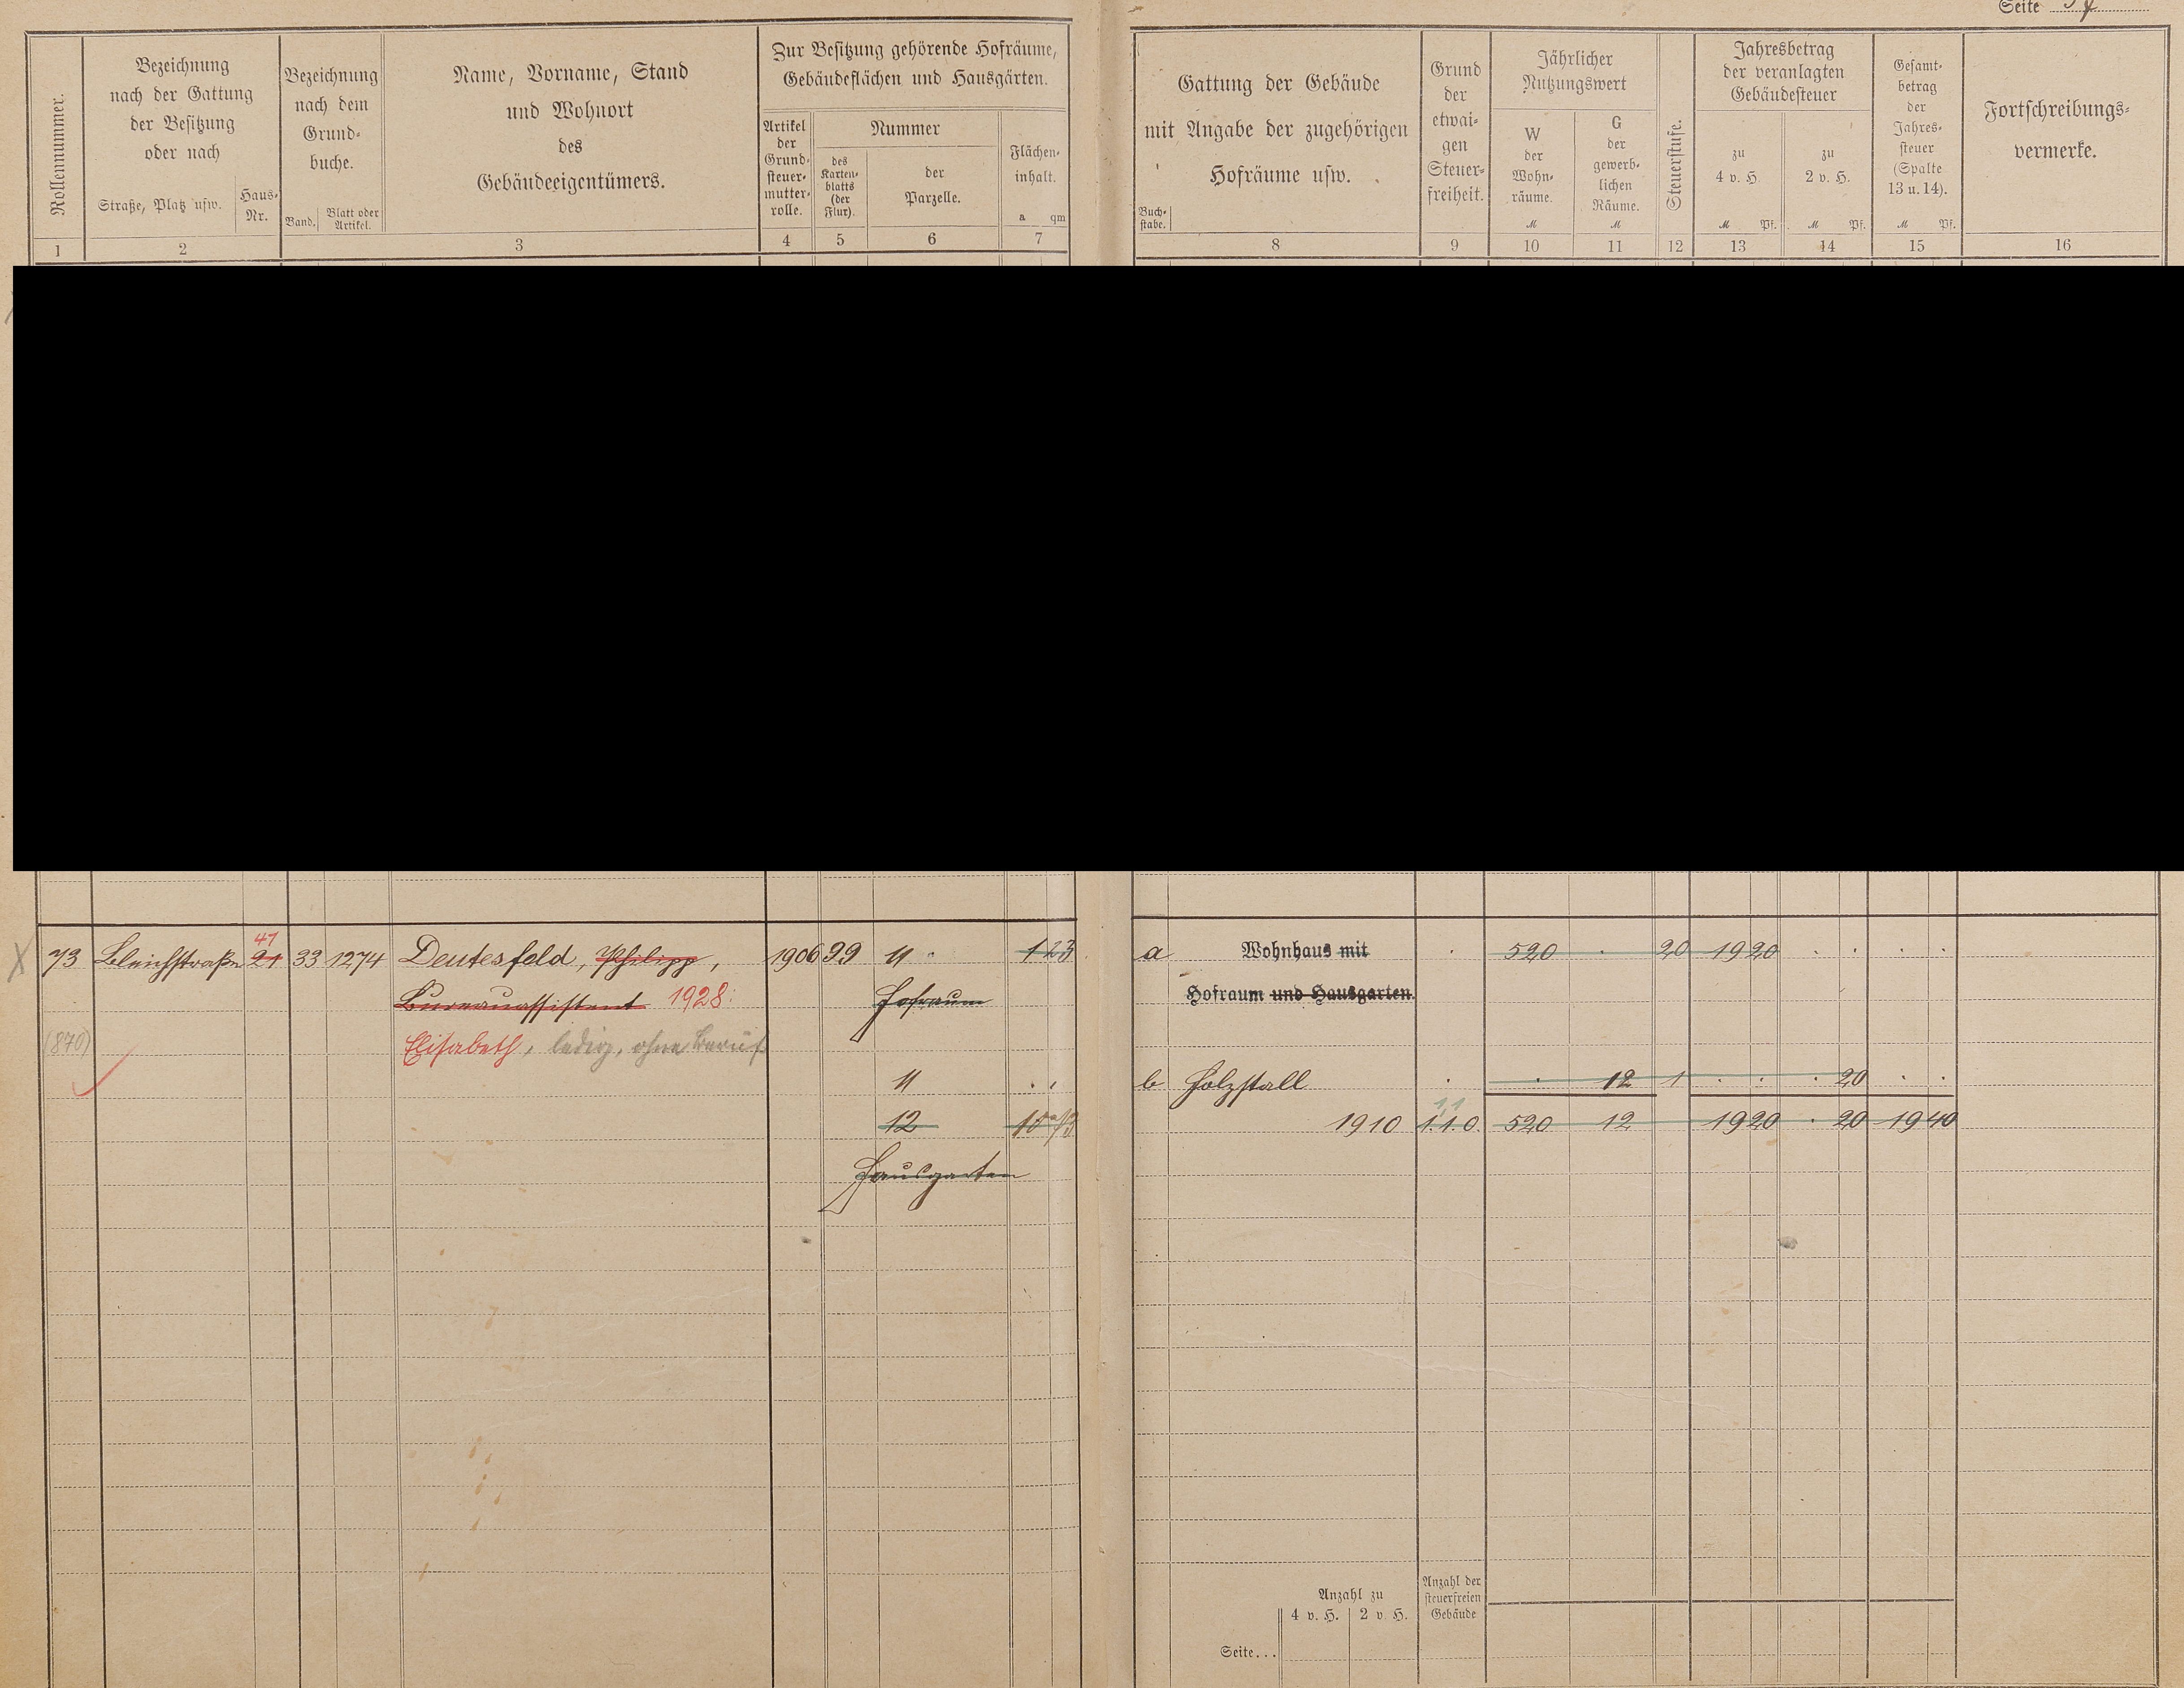 Seite
Rollennummer.
Bezeichnung
nach der Gattung
der Besitzung
oder nach
Straße, Platz usw.
Haus-
Nr.
Bezeichnung
nach dem
Grund-
buche.
Band.
Blatt oder
Artikel.
Name, Vorname, Stand
und Wohnort
des
Gebäudeeigentümers.
Zur Besitzung gehörende Hofräume,
Gebäudeflächen und Hausgärten.
Artikel
der
Grund-
steuer-
mutter-
rolle.
Nummer
des
Karten-
blatts
(der
Flur).
der
Parzelle.
Flächen-
inhalt.
a qm
1 2 3 4 5 6 7
Gattung der Gebäude
mit Angabe der zugehörigen
Hofräume usw.
Buch-
stabe.
Grund
der
etwai-
gen
Steuer-
freiheit.
Jährlicher
Nutzungswert
W
der
Wohn-
räume.
M
G
der
gewerb-
lichen
Räume.
M
Steuerstufe.
Jahresbetrag
der veranlagten
Gebäudesteuer
zu
4 v. H.
M Pf.
zu
2 v. H.
M Pf.
Gesamt-
betrag
der
Jahres-
steuer
(Spalte
13 u. 14).
M Pf.
Fortschreibungs-
vermerke.
8 9 10 11 12 13 14 15 16
41
73 Bleichstraße 21 33 1274 Deutesfeld, Philipp, 1906 29 11 1 23
Bureauassistent 1928: Hofraum
(870) Elisabeth, ledig, ohne Beruf
11
12
Hausgarten
a Wohnhaus mit 520 20 19 20
Hofraum und Hausgarten.
b Holzstall 12 1 20
1,1
1910 1.1.0. 520 12 19 20 20 19 40
Anzahl zu
4 v. H. 2 v. H.
Anzahl der
steuerfreien
Gebäude
Seite...